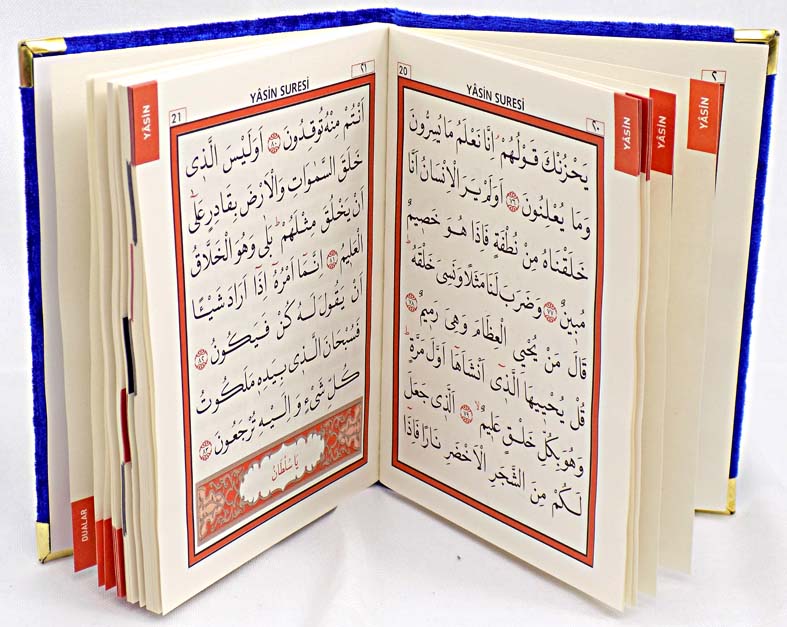 20
٢٠
YÂSİN SURESİ
يَحْزُنْكَ قَوْلُهُمْ اِنَّا نَعْلَمُ مَا يُسِرُّونَ
وَمَا يُعْلِنُونَ ﴿٧٦﴾ اَوَلَمْ يَرَ الْاِنْسَانُ اَنَّا
خَلَقْنَاهُ مِنْ نُطْفَةٍ فَاِذَا هُوَ خَصِيمٌ
مُبِينٌ ﴿٧٧﴾ وَضَرَبَ لَنَا مَثَلًا وَنَسِىَ خَلْقَهُ
قَالَ مَنْ يُحْيِي الْعِظَامَ وَهِىَ رَمِيمٌ ﴿٧٨﴾
قُلْ يُحْيِيهَا الَّذٖى اَنْشَاَهَا اَوَّلَ مَرَّةٍ
وَهُوَ بِكُلِّ خَلْقٍ عَلِيمٌ ﴿٧٩﴾ اَلَّذٖى جَعَلَ
لَكُمْ مِنَ الشَّجَرِ الْاَخْضَرِ نَارًا فَاِذَا
YÂSİN
YÂSİN
YÂSİN
٢
21
٢١
YÂSİN SURESİ
اَنْتُمْ مِنْهُ تُوقِدُونَ ﴿٨٠﴾ اَوَلَيْسَ الَّذٖى
خَلَقَ السَّمٰوَاتِ وَالْاَرْضَ بِقَادِرٍ عَلٰٓى
اَنْ يَخْلُقَ مِثْلَهُمْ بَلٰى وَهُوَ الْخَلَّاقُ
الْعَلِيمُ ﴿٨١﴾ اِنَّمَٓا اَمْرُهُٓ اِذَٓا اَرَادَ شَيْـًٔا
اَنْ يَقُولَ لَهُ كُنْ فَيَكُونُ ﴿٨٢﴾
فَسُبْحَانَ الَّذٖى بِيَدِهٖ مَلَكُوتُ
كُلِّ شَیْءٍ وَاِلَيْهِ تُرْجَعُونَ ﴿٨٣﴾
يَا سُلْطَانُ
YÂSİN
DUALAR